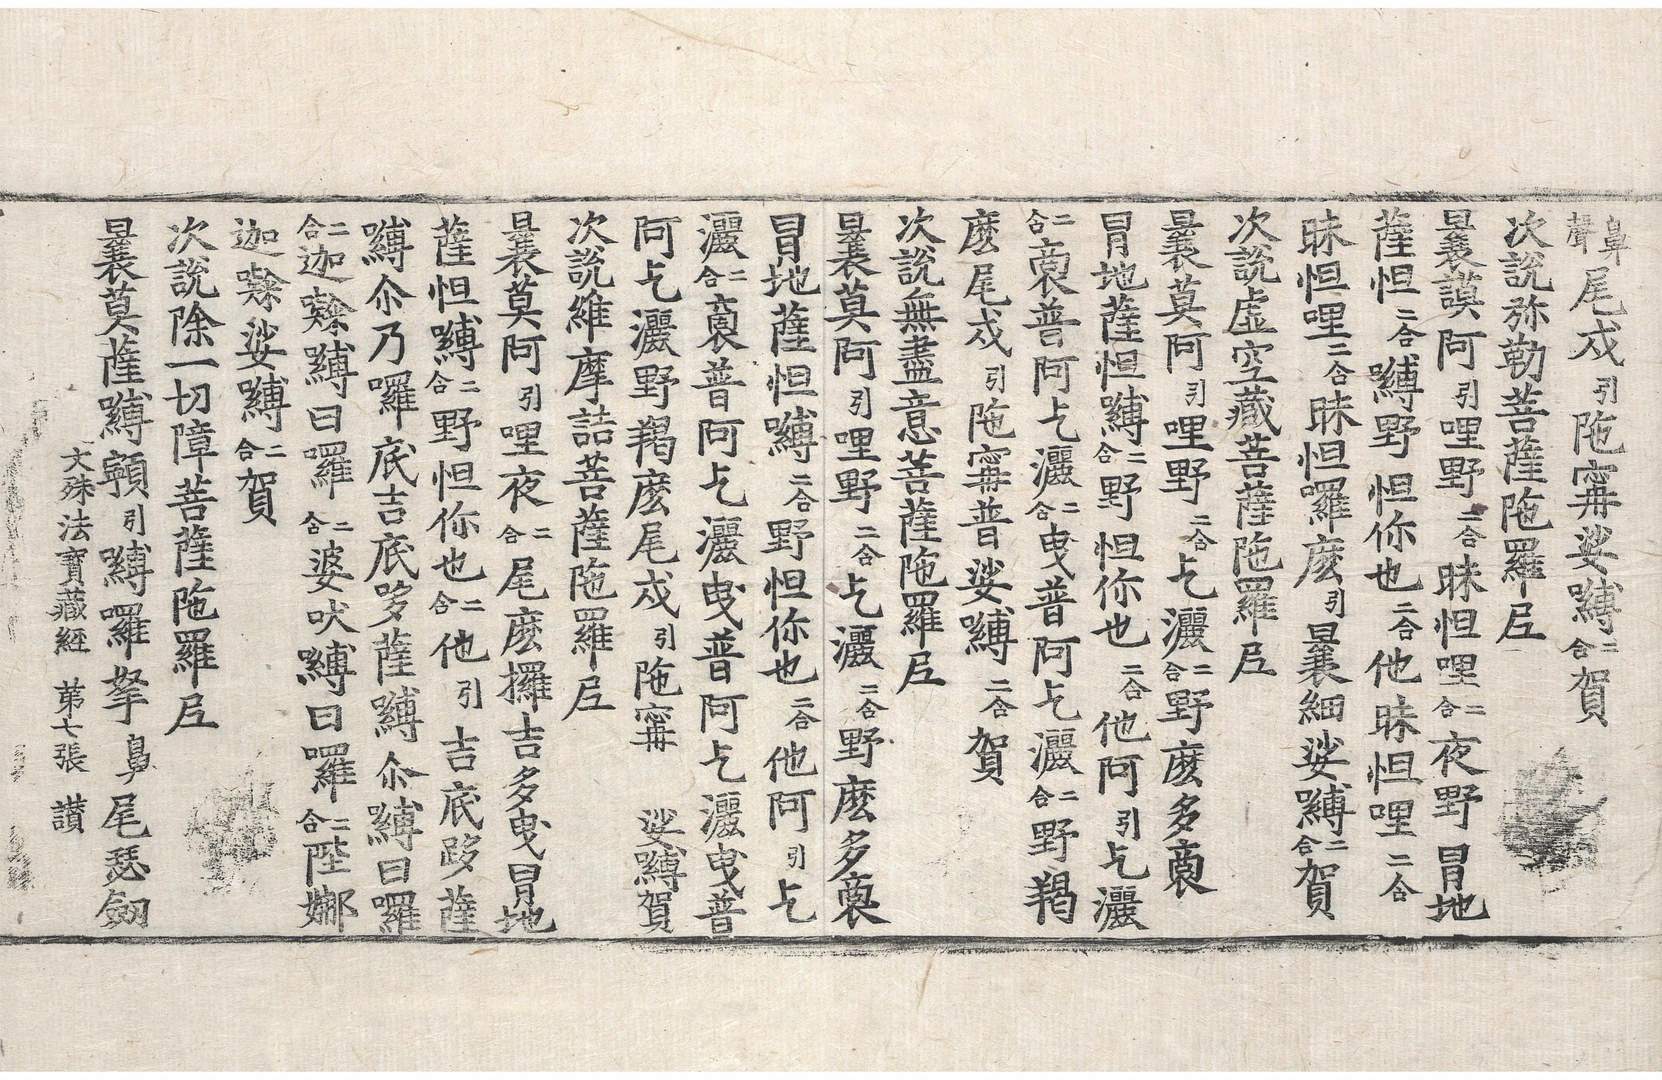 鼻聲尾戍引陁寗娑嚩二合賀
次說弥勒菩薩陁羅尼
曩謨阿引哩野二合昧怛哩二合夜野冐地
薩怛二合嚩野怛你也二合他昧怛哩二合
昧怛哩二合昧怛囉麽引曩細娑嚩二合賀
次說虛空藏菩薩陁羅尼
曩莫阿引哩野二合乞灑二合野麽多裔
冐地薩怛嚩二合野怛你也二合他阿引乞灑
二合裔普阿乞灑二合曳普阿乞灑二合野羯
麽尾戍引陁寗普娑嚩二合賀
次說無盡意菩薩陁羅尼
曩莫阿引哩野二合乞灑二合野麽多裔
冐地薩怛嚩二合野怛你也二合他阿引乞
灑二合裔普阿乞灑曳普阿乞灑曳普
阿乞灑野羯麽尾戍引陁寗娑嚩賀
次說維摩詰菩薩陁羅尼
曩莫阿引哩夜二合尾麽攞吉多曳冐地
薩怛嚩二合野怛你也二合他引吉底哆薩
嚩尒乃囉底吉底哆薩嚩尒嚩日囉
二合迦㘑嚩日囉二合婆吠嚩日囉二合陛娜
迦㘑娑嚩二合賀
次說除一切障菩薩陁羅尼
曩莫薩嚩𩕳引嚩囉拏鼻尾瑟劒
文殊法寶藏經 第七張 讃